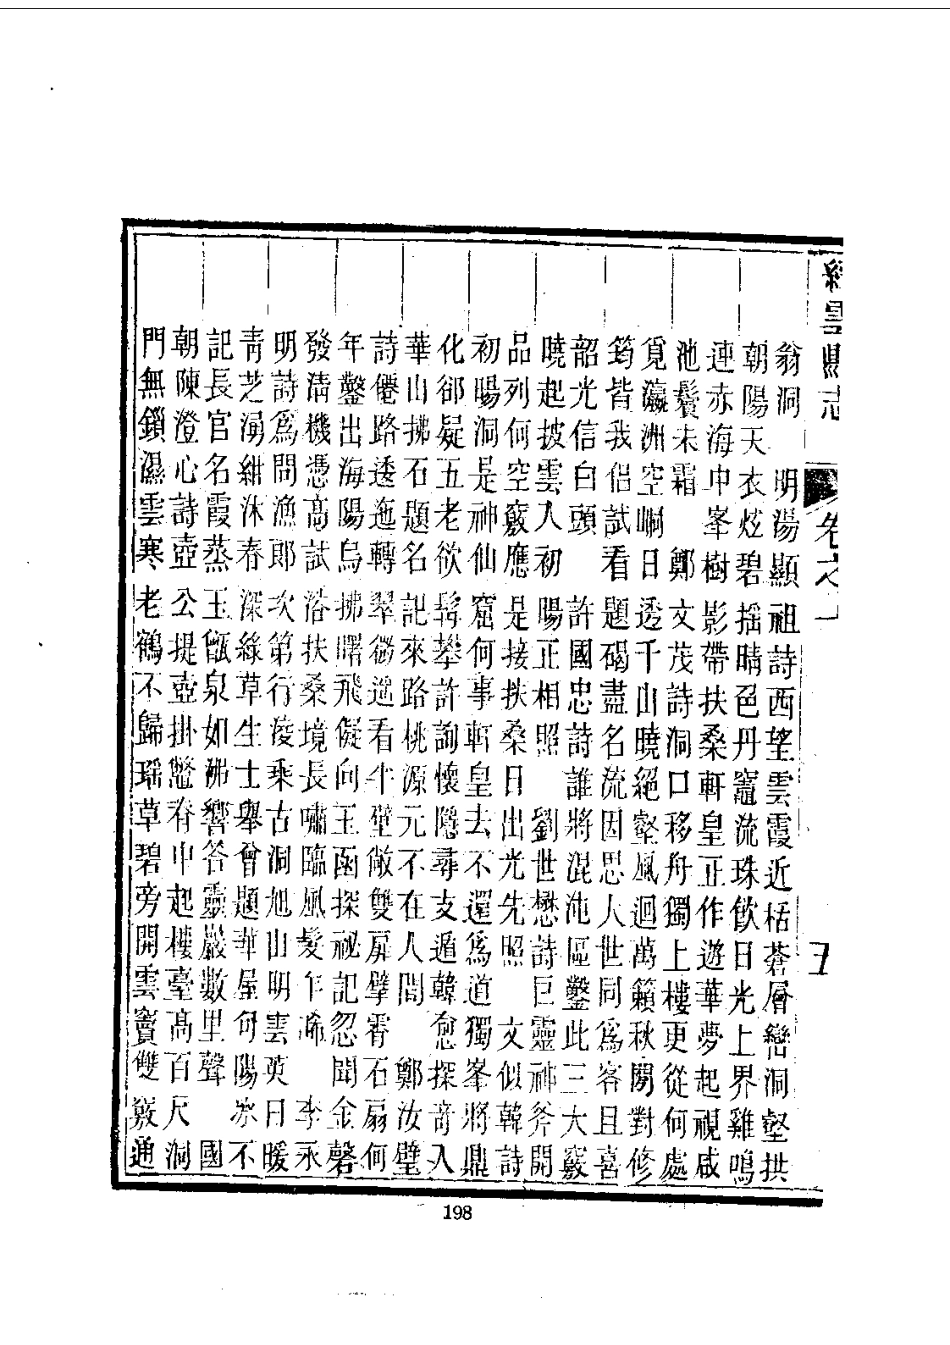 縉雲縣志 卷之一 五
翁洞 明湯顯祖詩西望雲霞近栝蒼層巒洞壑拱
朝陽天衣炫碧搖晴色丹竈流珠飲日光上界雞鳴
連赤海中峯樹影帶扶桑軒皇正作遊華夢起視咸
池鬢未霜 鄭文茂詩洞口移舟獨上樓更從何處
覓瀛洲空峒日透千山曉絕壑風迴萬籟秋閒對修
筠皆我侶試看題碣盡名流因思人世同為客且喜
韶光信白頭 許國忠詩誰將混沌區鑿此三大竅
曉起披雲入初陽正相照 劉世懋詩巨靈神斧開
品列何空竅應是接扶桑日出光先照 文似韓詩
初暘洞是神仙窟何事軒皇去不還為道獨峯將鼎
化郤疑五老欲髯攀許詢懷隱尋支遁韓愈探奇入
華山拂石題名記來路桃源元不在人間 鄭汝璧
詩僊路透迤轉翠微遥看半壁敞雙扉擘霄石扇何
年鑿出海陽烏拂曙飛儗向玉函探祕記忽聞金磬
發清機憑高試浴扶桑境長嘯臨風髮乍晞 李永
明詩為問漁郎次第行凌乘古洞旭山明雲英日暖
靑芝湧紺沐春深綠草生士舉曾題華屋句陽冰不
記長官名霞蒸玉甑泉如沸響答靈巖數里聲 國
朝陳澄心詩壺公提壺掛鼇脊中起樓臺高百尺洞
門無鎖濕雲寒老鶴不歸瑶草碧旁開雲竇雙竅通
198